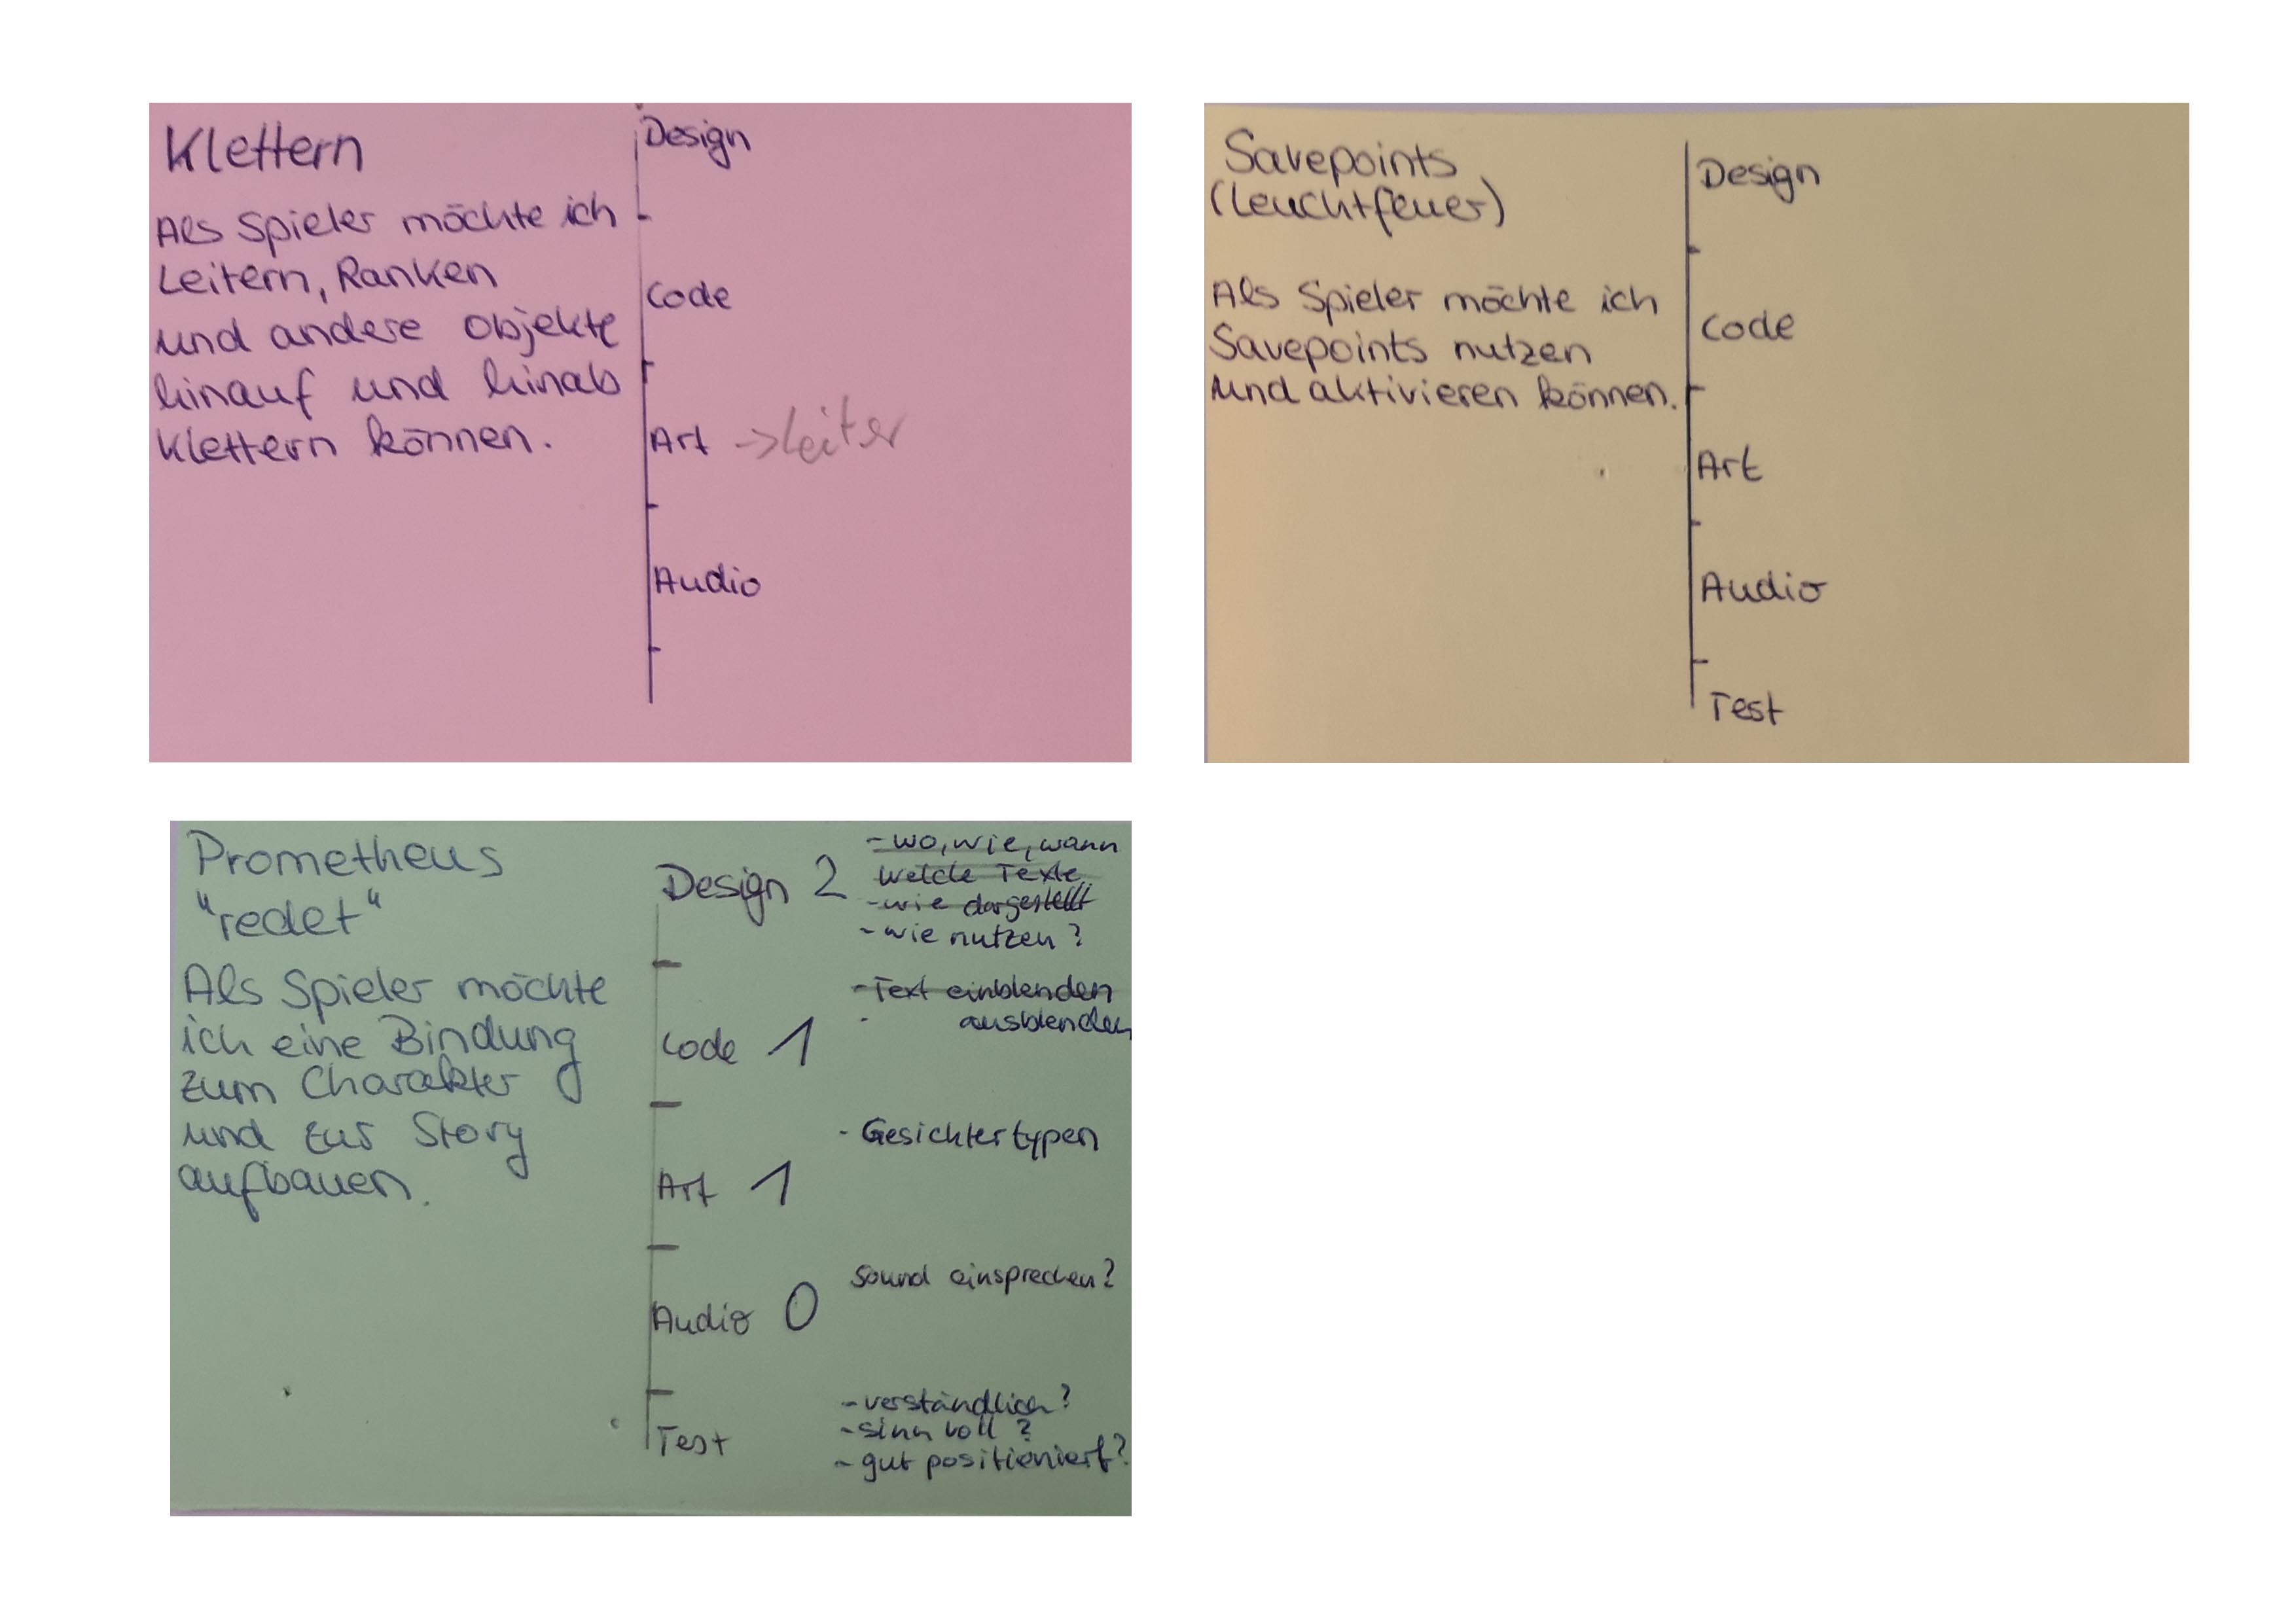 Klettern
Als Spieler möchte ich
Leitern, Ranken
und andere Objekte
hinauf und hinab
klettern können.
Design
Code
Art ->Leiter
Audio
Savepoints
(Leuchtfeuer)
Als Spieler möchte ich
Savepoints nutzen
und aktivieren können.
Design
Code
Art
Audio
Test
Prometheus
"redet"
Als Spieler möchte
ich eine Bindung
zum Charakter
und zur Story
aufbauen.
Design 2
- wo, wie, wann
welche Texte
- wie dargestellt
- wie nutzen?
Code 1
- Text einblenden
- ausblenden
Art 1
- Gesichtertypen
Audio 0
Sound einsprechen?
Test
- verständlich?
- sinnvoll?
- gut positioniert?